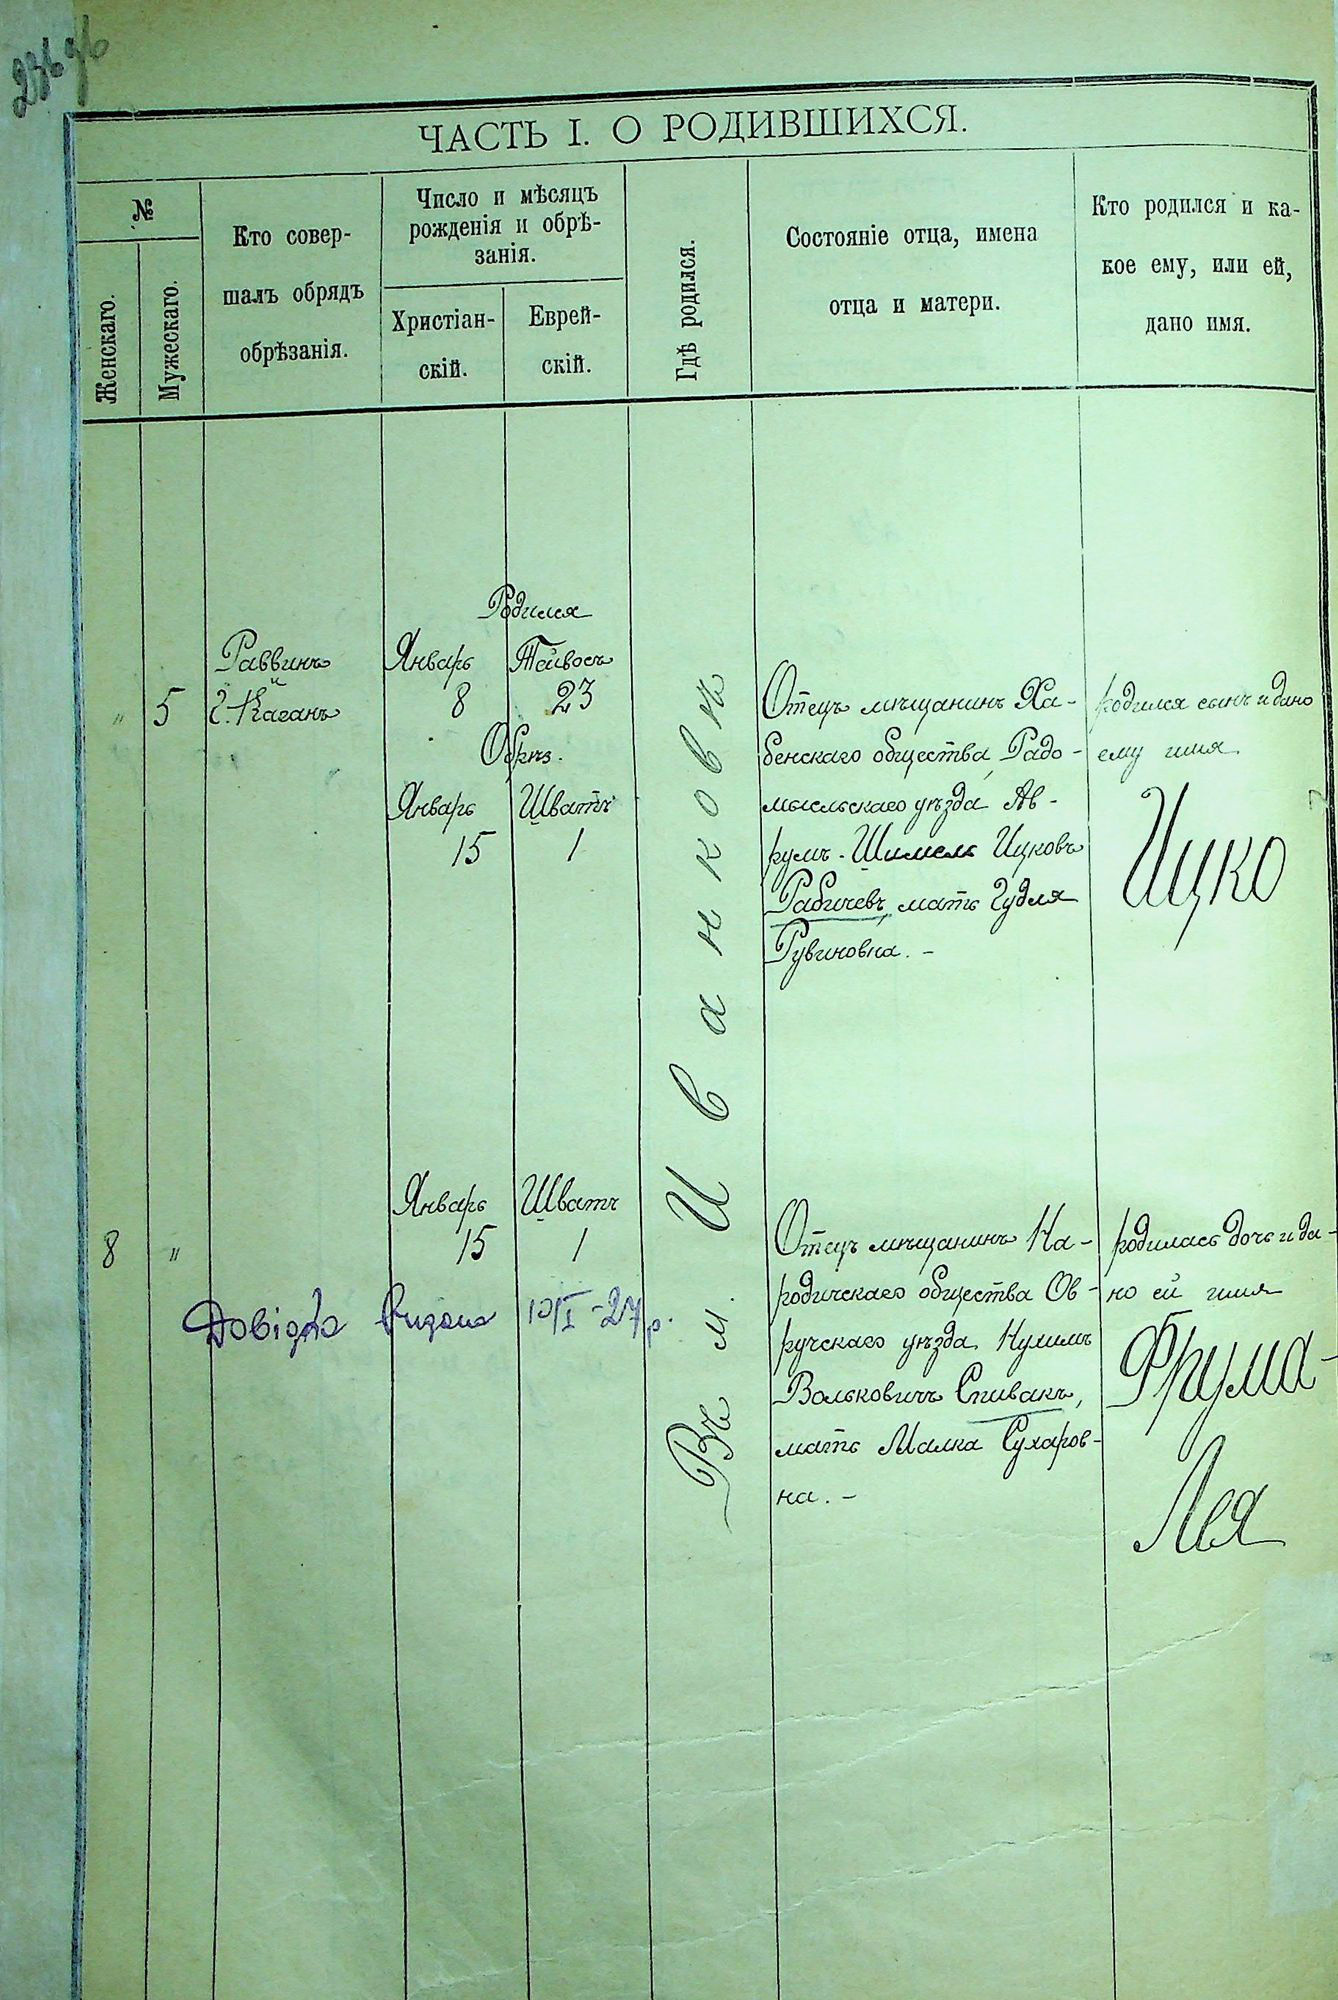 236
ЧАСТЬ I. О РОДИВШИХСЯ.
№
Женскаго.
Мужескаго.
Кто совер-
шалъ обрядъ
обрѣзанія.
Число и мѣсяцъ
рожденія и обрѣ-
занія.
Христіан-
скій.
Еврей-
скій.
Гдѣ родился.
Состояніе отца, имена
отца и матери.
Кто родился и ка-
кое ему, или ей,
дано имя.
"
5
Раввинъ
Каганъ
Родился
Январь Тейвосъ
8 23
Обрѣз.
Январь Шватъ
15 1
Въ м. Иванковѣ
Отецъ мѣщанинъ Ха-
бенскаго общества, Радо-
мысльскаго уѣзда Ав-
румъ-Шимель Ицковъ
Рабичевъ, мать Гудля
Рувиновна. –
родился сынъ и дано
ему имя
Ицко
8
"
Январь Шватъ
15 1
Довідка видана 10/I-27р.
Отецъ мѣщанинъ На-
родичскаго общества Ов-
ручскаго уѣзда Нулимъ
Вольковичъ Спивакъ,
мать Малка Сухаров-
на. –
родилась дочь и да-
но ей имя
Фрума-
Лея